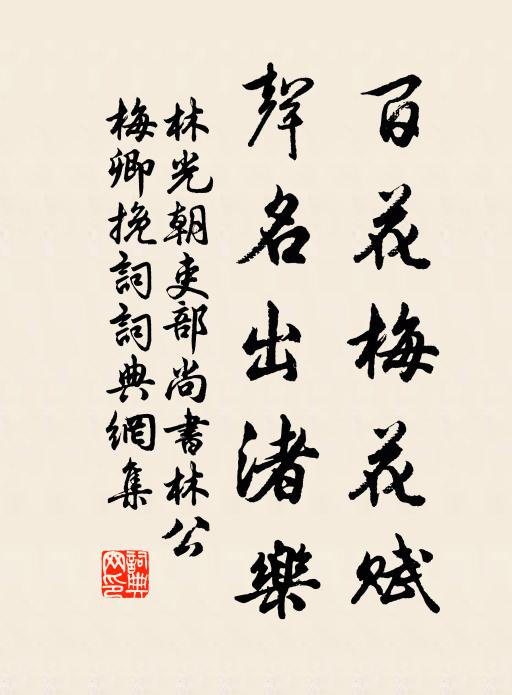 百花梅花赋
聲名出渚樂
林光朝吏部尚書林公
梅卿挽詞詞典網集
詞典
网印